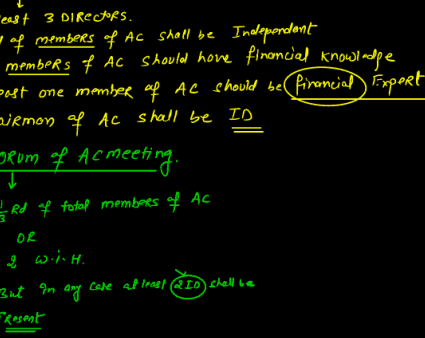 east 3 DIRECTORS.
d of members of AC shall be Independent
members of AC should have financial knowledge
east one member of AC should be financial Expert
airman of AC shall be ID
ORUM of AC meeting.
1/3 Rd of total members of AC
OR
2 W.i.H.
But in any case at least 2 ID shall be
Present